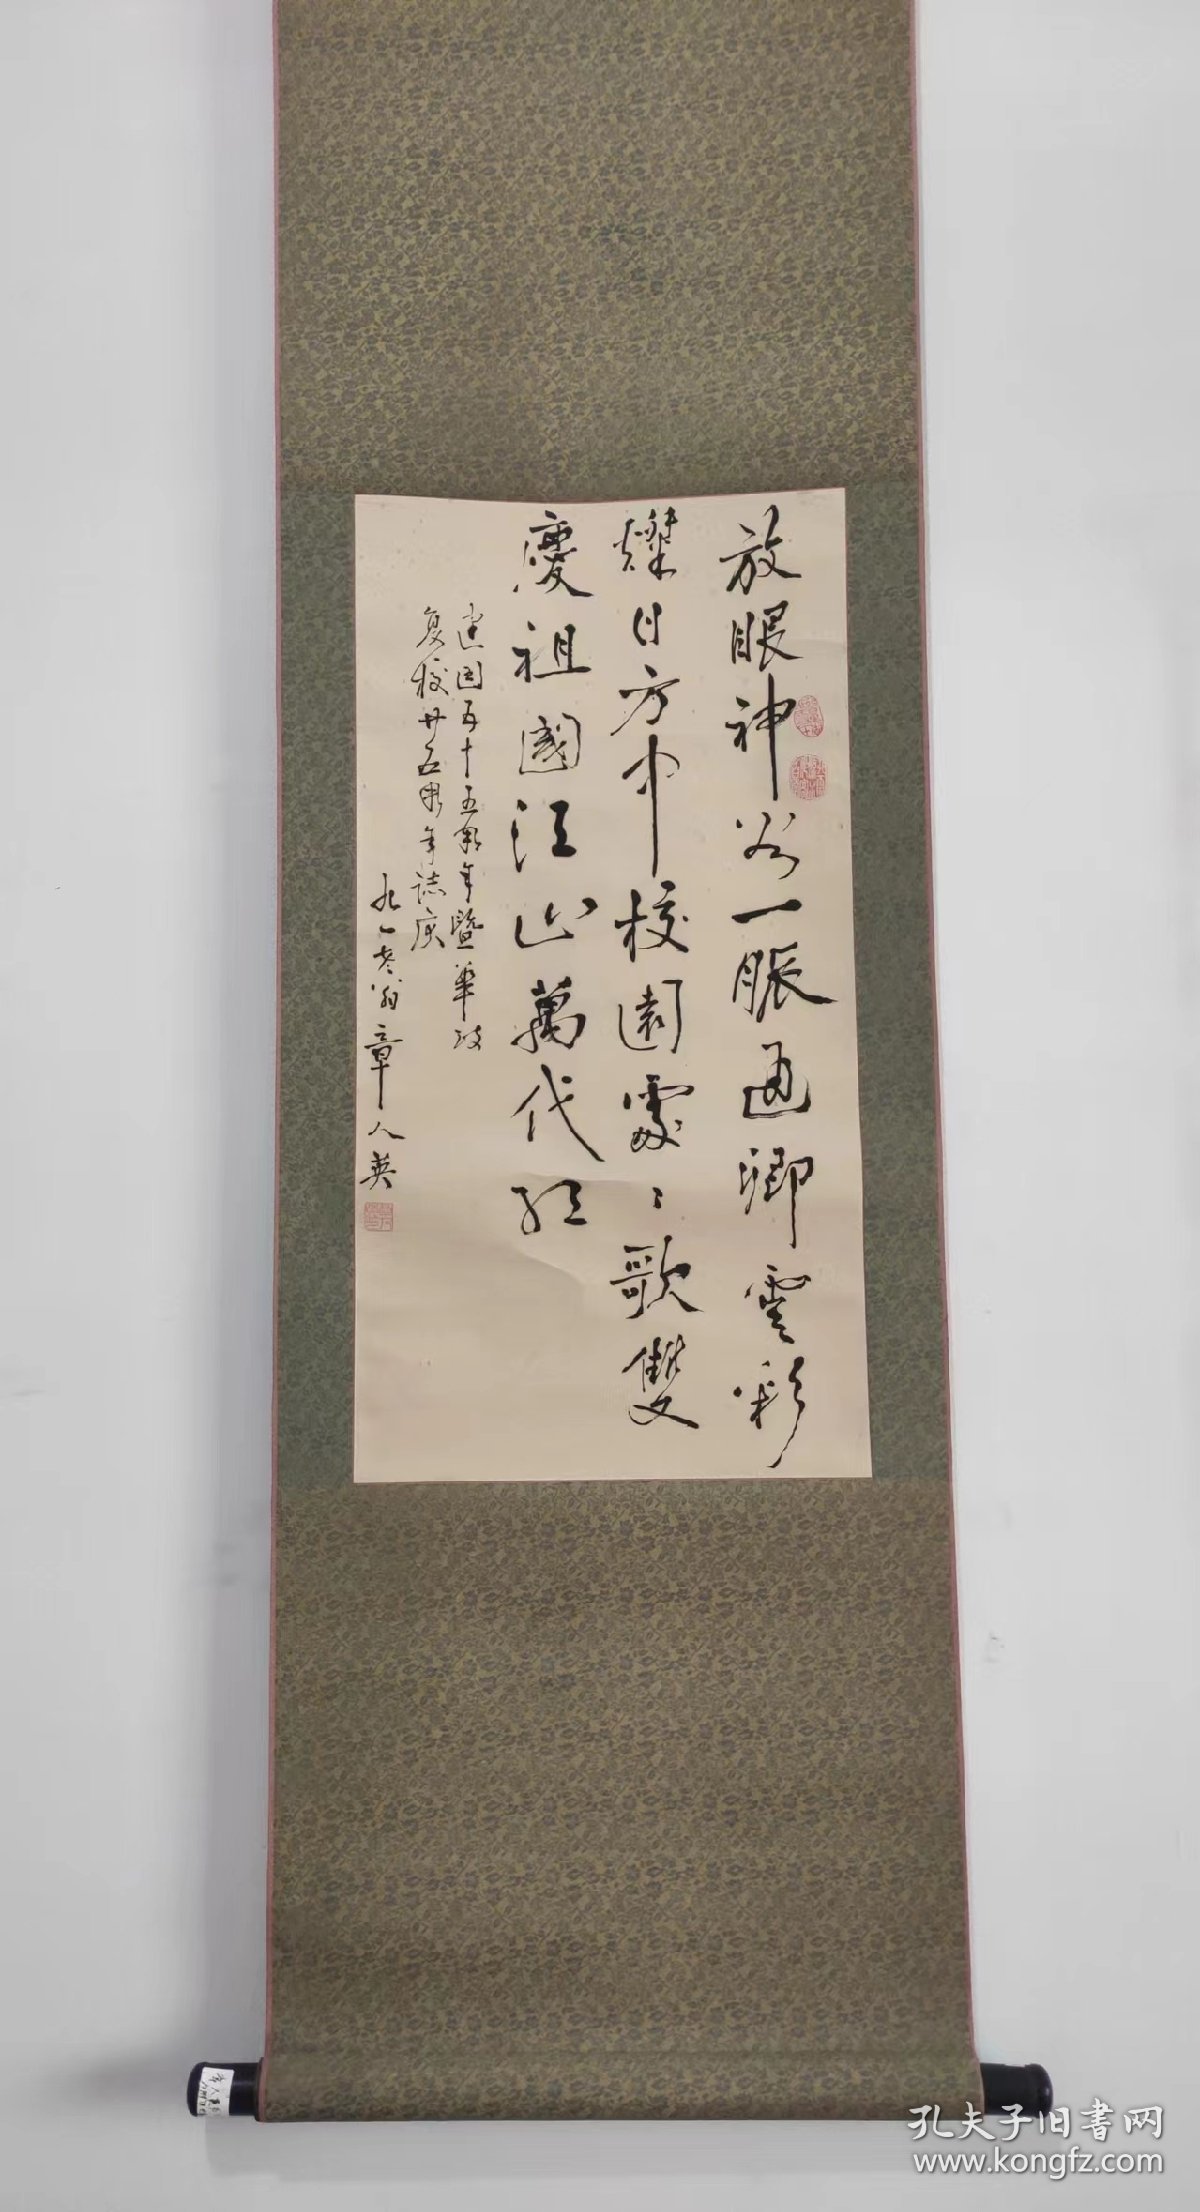 放眼神州一脈通卿雲彩
燦日方中校園處處歌雙
慶祖國江山萬代紅
建国五十五周年暨華政
复校廿五周年誌庆
九一老翁章人英
孔夫子旧书网
www.kongfz.com